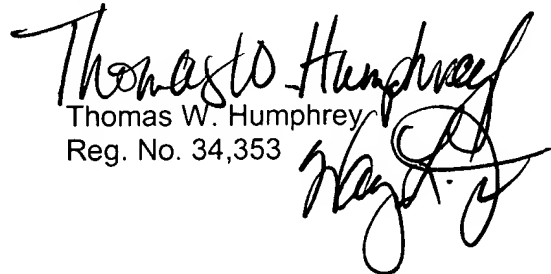 Thomas W. Humphrey
Thomas W. Humphrey
Reg. No. 34,353